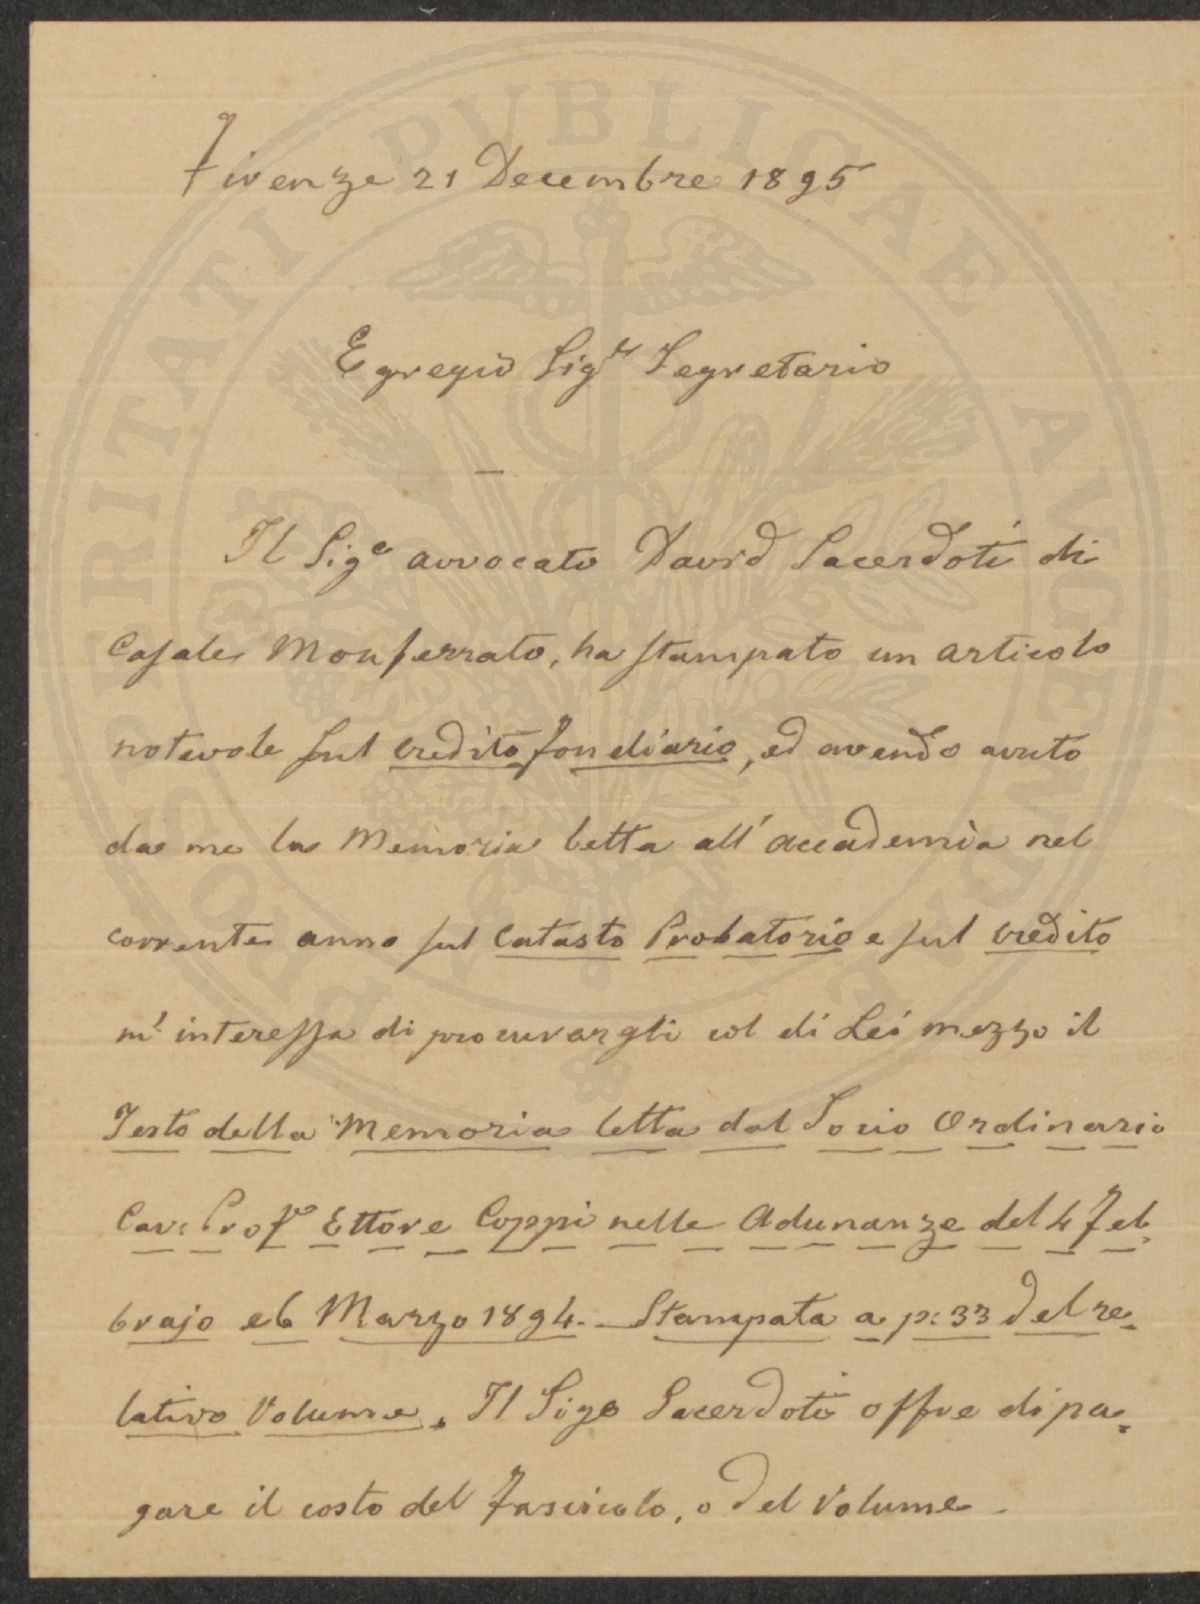 Firenze 21 Decembre 1895
Egregio Sigr Segretario
Il Sige avvocato David Sacerdoti di
Casale Monferrato, ha stampato un articolo
notevole sul credito fondiario, ed avendo avuto
da me la Memoria letta all'accademia nel
corrente anno sul Catasto Probatorio e sul credito
m'interessa di procurargli col di Lei mezzo il
Testo della Memoria letta dal Socio Ordinario
Cav: Profe Ettore Coppi nelle Adunanze del 4 Feb-
brajo e 6 Marzo 1894. Stampata a p: 33 del re-
lativo Volume. Il Sige Sacerdoti offre di pa-
gare il costo del Fascicolo, o del Volume.
PROSPERITATI PVBLICAE AVGENDAE